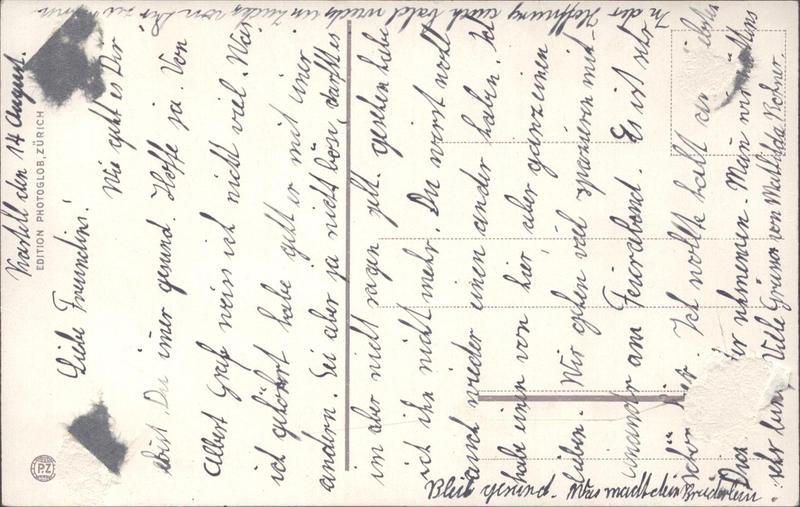 Kastell den 14 August.
Liebe Freundin!
Wie geht es Dir
bist Du imer gesund. Hoffe ja. Von
Albert Graf weiss ich nicht viel. Was
ich gehört habe geht er mit einer
andern. Sei aber ja nicht bös, darfst es
im aber nicht sagen gell. gesehen habe
ich ihn nicht mehr. Du wirst noch
auch wieder einen ander haben. Ich
habe einen von hier aber ganz einen
lieben. Wir gehen viel spazieren mit-
einander am Feierabend. Es ist sehr
schön hier. Ich wollte halt
Dich nehmen. Man
sehr Viele Grüsse von Mathilda Rohner.
Bleib gesund. Was macht dein Brüderlein.
In der Hoffnung auch bald wieder ein Zeichen von Dir zu
EDITION PHOTOGLOB, ZÜRICH
PZ